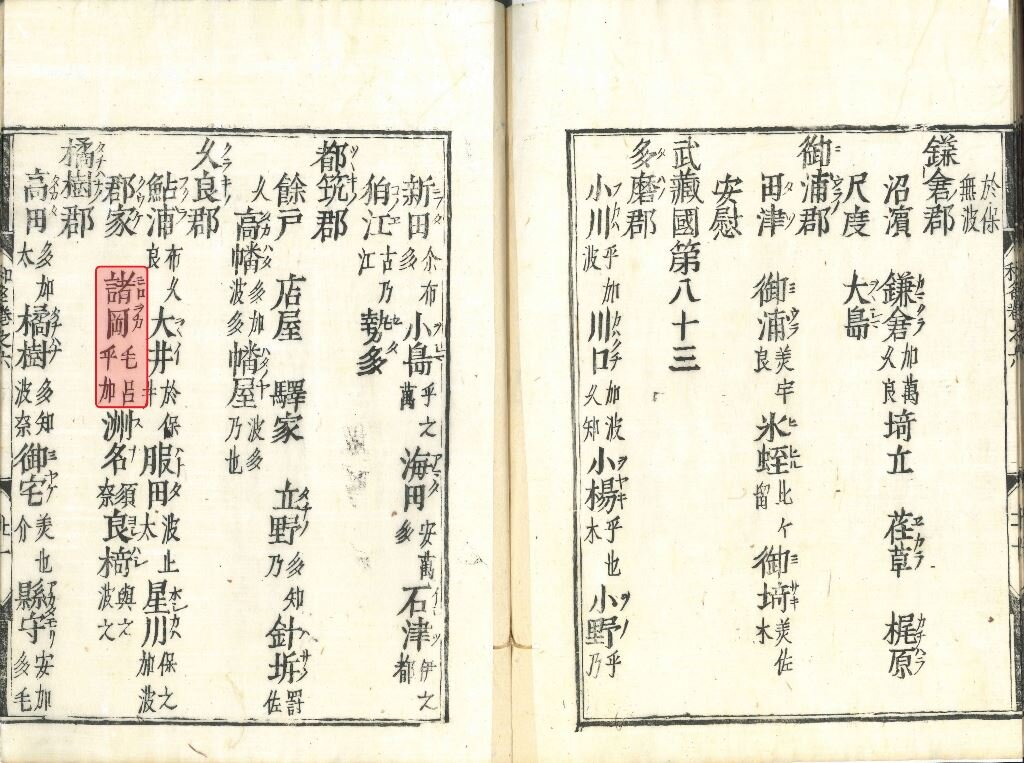 於保無波
鎌倉郡
沼濱 鎌倉 加萬久良 埼立 荏草 梶原
尺度 大島
御浦郡
田津 御浦 美宇良 氷蛭 比々留 御埼 美佐木
安慰
武藏國第八十三
多磨郡
小川 乎加波 川口 加波久知 小楊 乎也木 小野 乎乃
新田 尓布多 小島 乎之萬 海田 安萬多 石津 伊之都
狛江 古乃江 勢多
都筑郡
餘戸 店屋 驛家 立野 多知乃 針㘴 罸佐
久 高幡 多加波多 幡屋 波多乃也
久良郡
鮎浦 布久良 大井 於保井 服田 波止太 星川 保之加波
郡家 諸岡 毛呂乎加 洲名 須奈 良椅 與之波之
橘樹郡
高田 多加太 橘樹 多知波奈 御宅 美也介 縣守 安加多毛